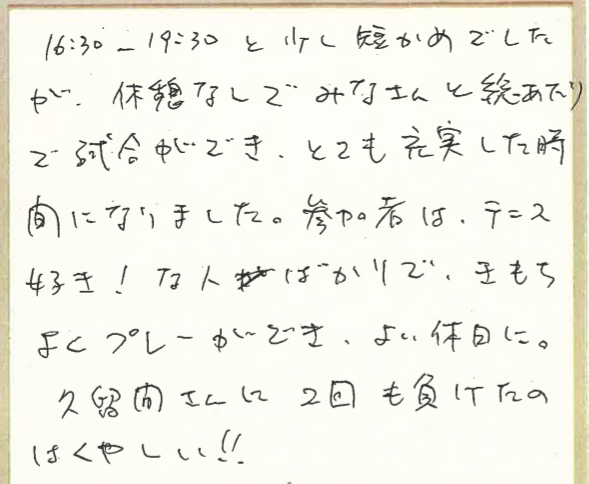 16:30-19:30 と少し短かめでした
が、休憩なしでみなさんと総あたり
で試合ができ、とても充実した時
間になりました。参加者は、テニス
好き！な人ばかりで、きもち
よくプレーができ、よい休日に。
久留間さんに2回も負けたの
はくやしい!!